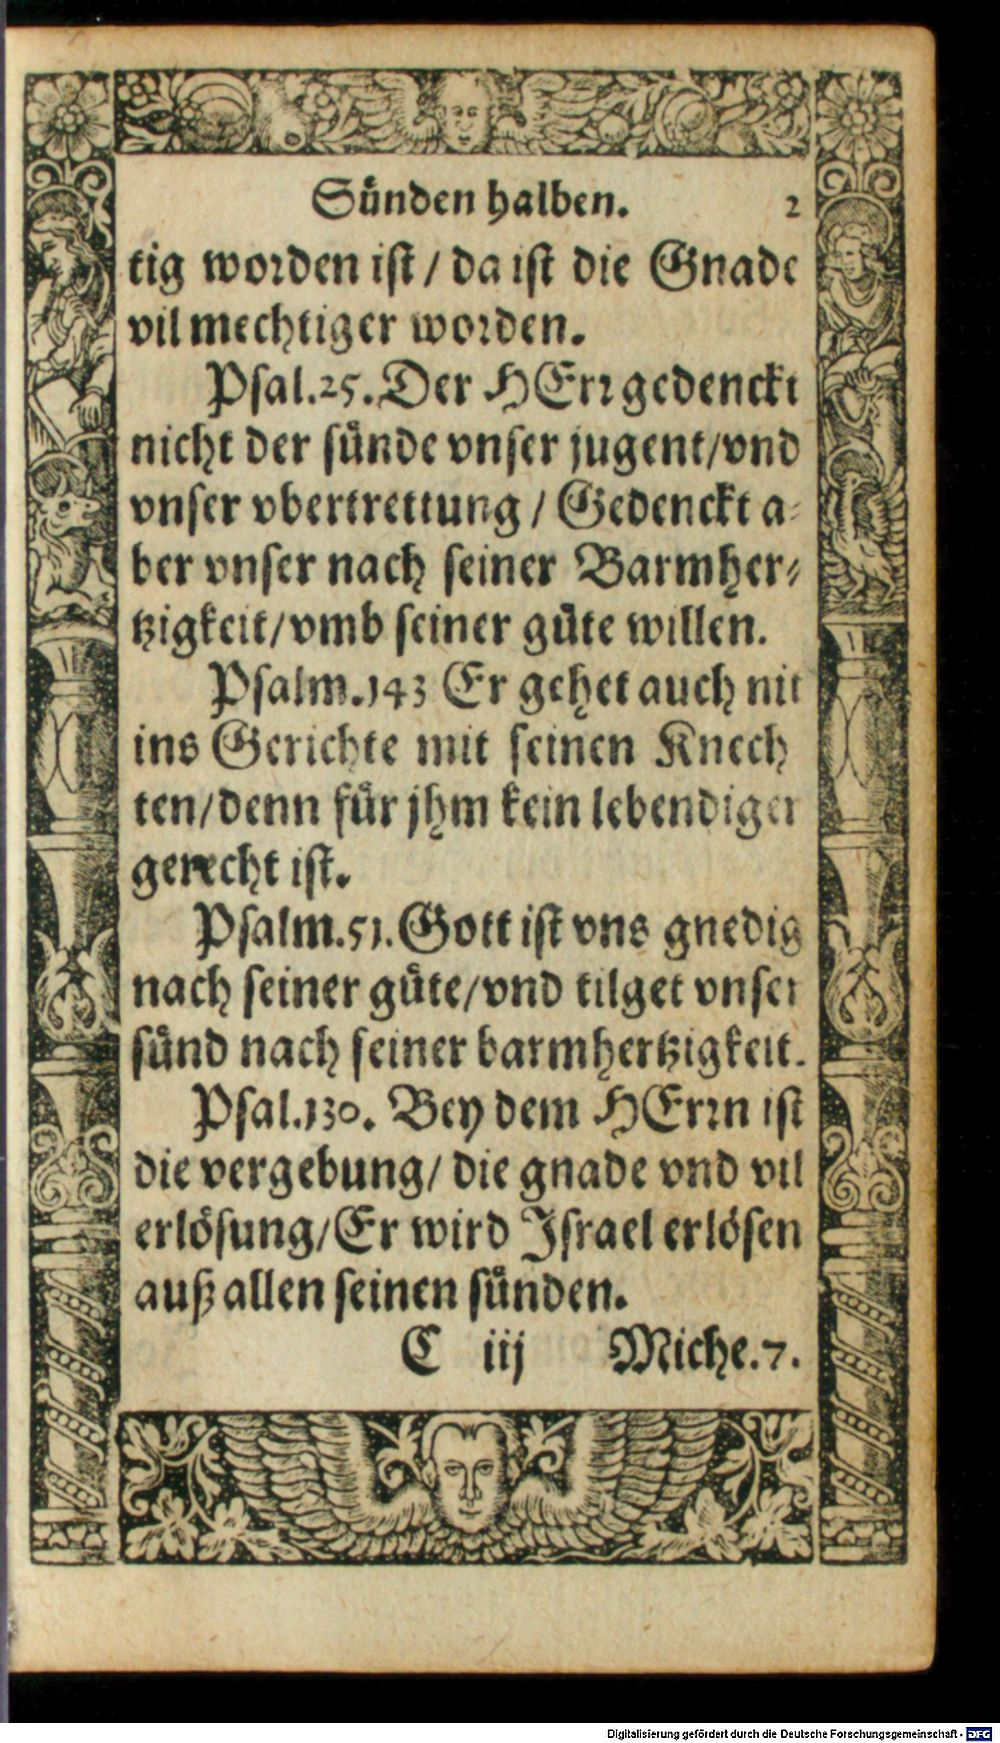 Sünden halben. 2
tig worden ist / da ist die Gnade
vil mechtiger worden.
Psal.25. Der HErr gedenckt
nicht der sünde vnser jugent/vnd
vnser vbertrettung / Gedenckt a⸗
ber vnser nach seiner Barmher⸗
tzigkeit/vmb seiner güte willen.
Psalm.143 Er gehet auch nit
ins Gerichte mit seinen Knech
ten/denn für jhm kein lebendiger
gerecht ist.
Psalm.51. Gott ist vns gnedig
nach seiner güte/vnd tilget vnser
sünd nach seiner barmhertzigkeit.
Psal.130. Bey dem HErrn ist
die vergebung/ die gnade vnd vil
erlösung/Er wird Israel erlösen
auß allen seinen sünden.
C iij Miche.7.
Digitalisierung gefördert durch die Deutsche Forschungsgemeinschaft - DFG